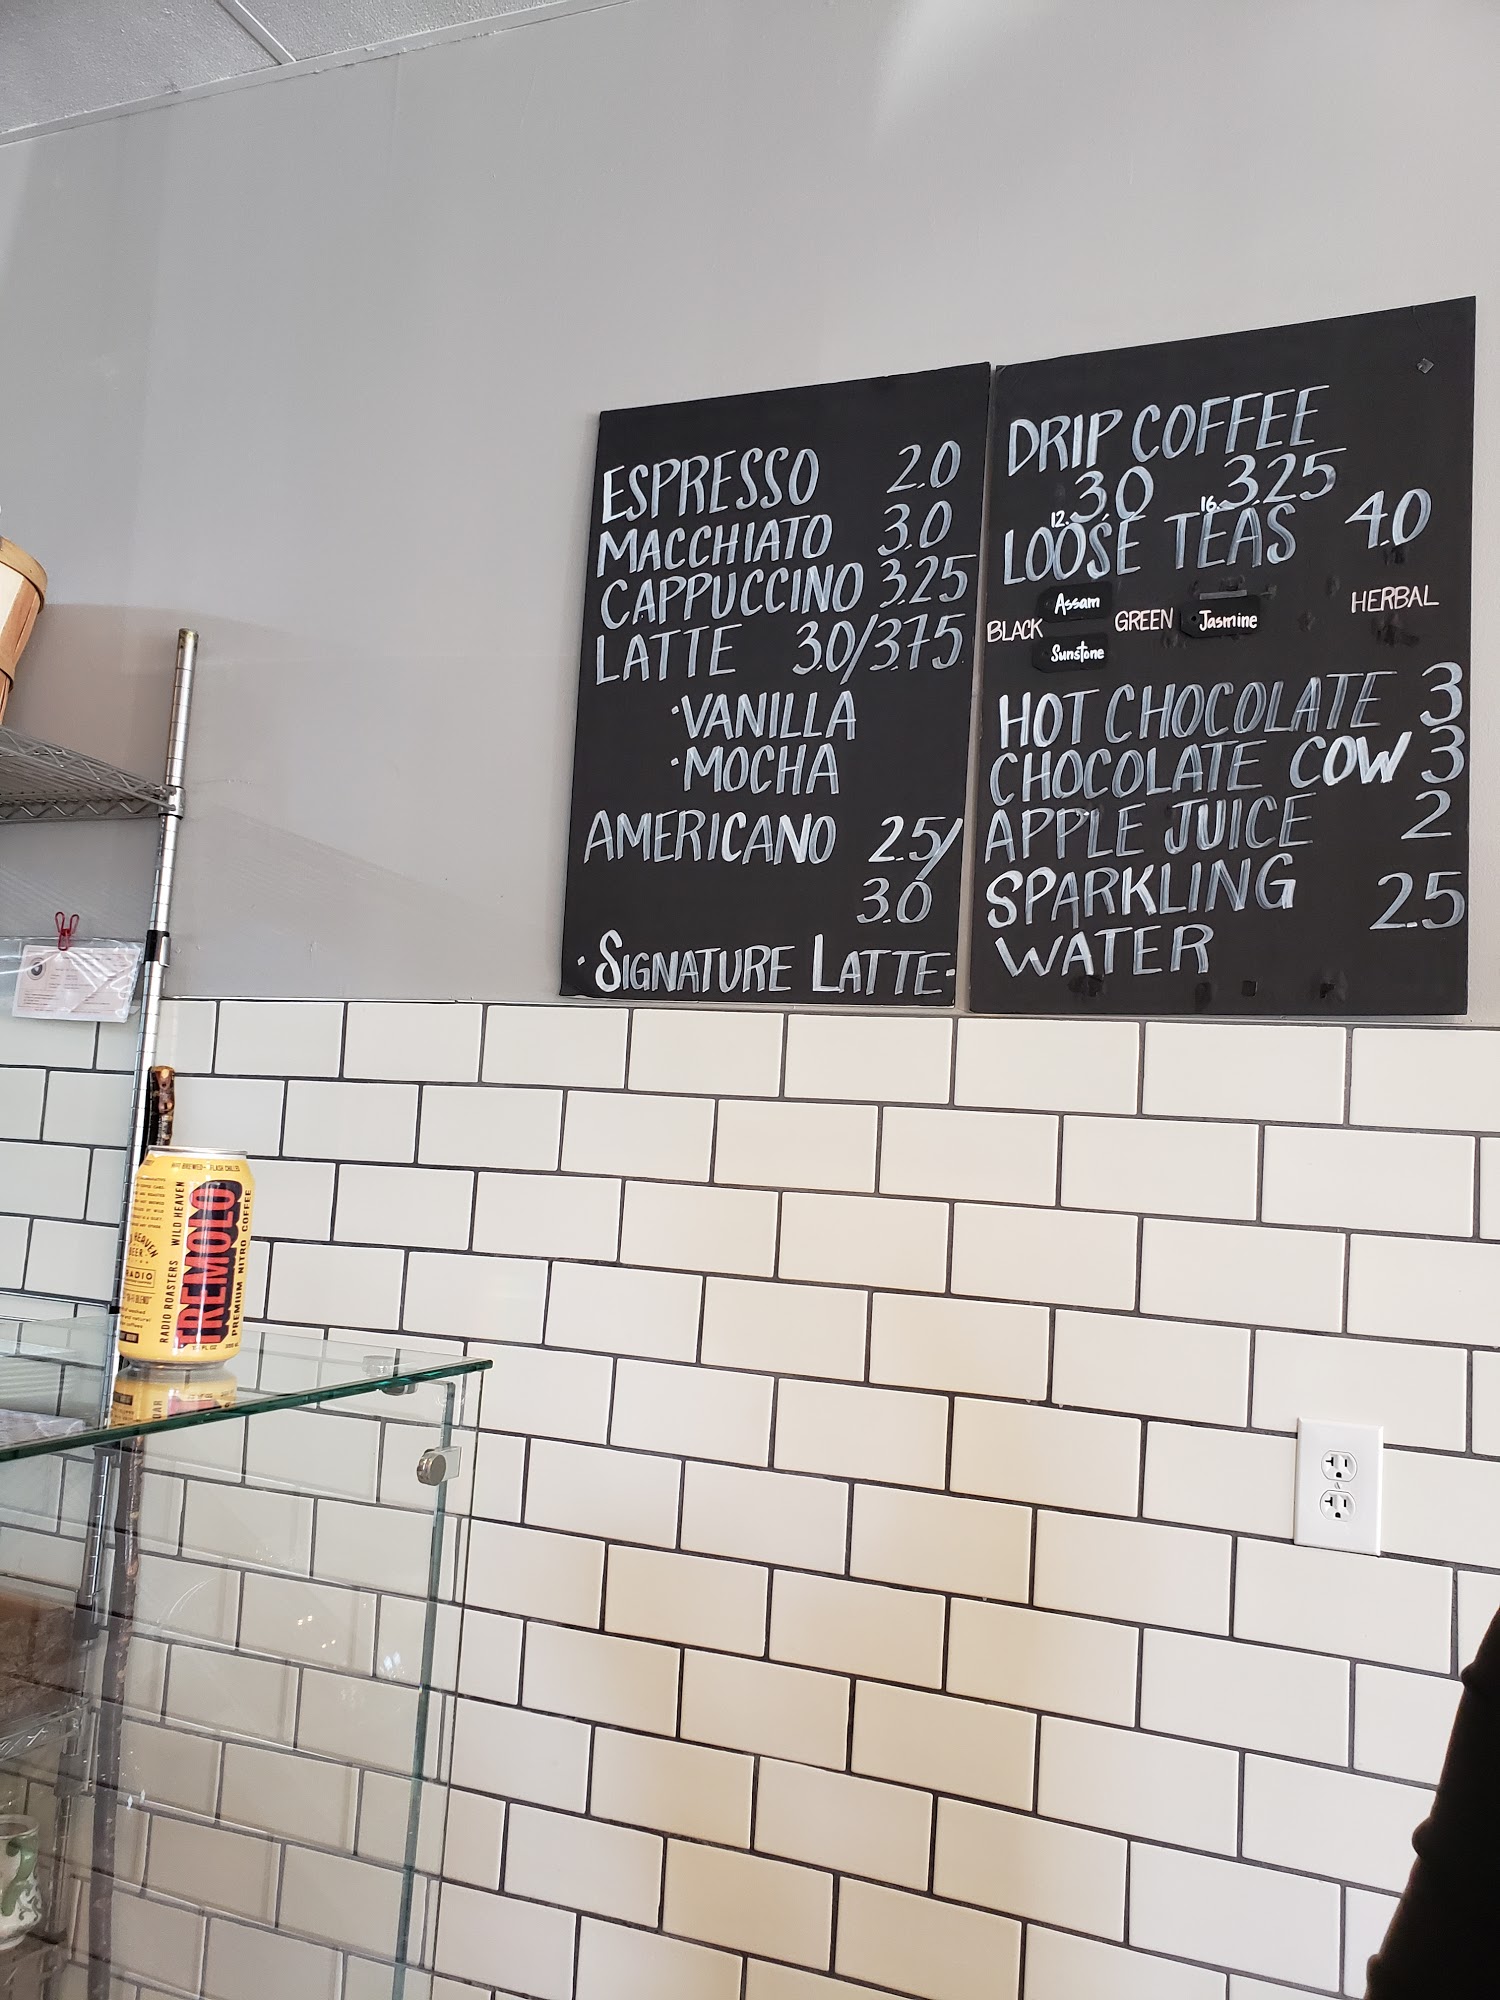 ESPRESSO 2.0
MACCHIATO 3.0
CAPPUCCINO 3.25
LATTE 3.0/3.75
·VANILLA
·MOCHA
AMERICANO 2.5/
3.0
·SIGNATURE LATTE·
DRIP COFFEE
12. 3.0 16. 3.25
LOOSE TEAS 4.0
BLACK Assam Sunstone GREEN Jasmine HERBAL
HOT CHOCOLATE 3
CHOCOLATE COW 3
APPLE JUICE 2
SPARKLING 2.5
WATER
HOT BREWED - FLASH CHILLED
RADIO ROASTERS WILD HEAVEN
TREMOLO
PREMIUM NITRO COFFEE
HEAVEN
BEER
RADIO